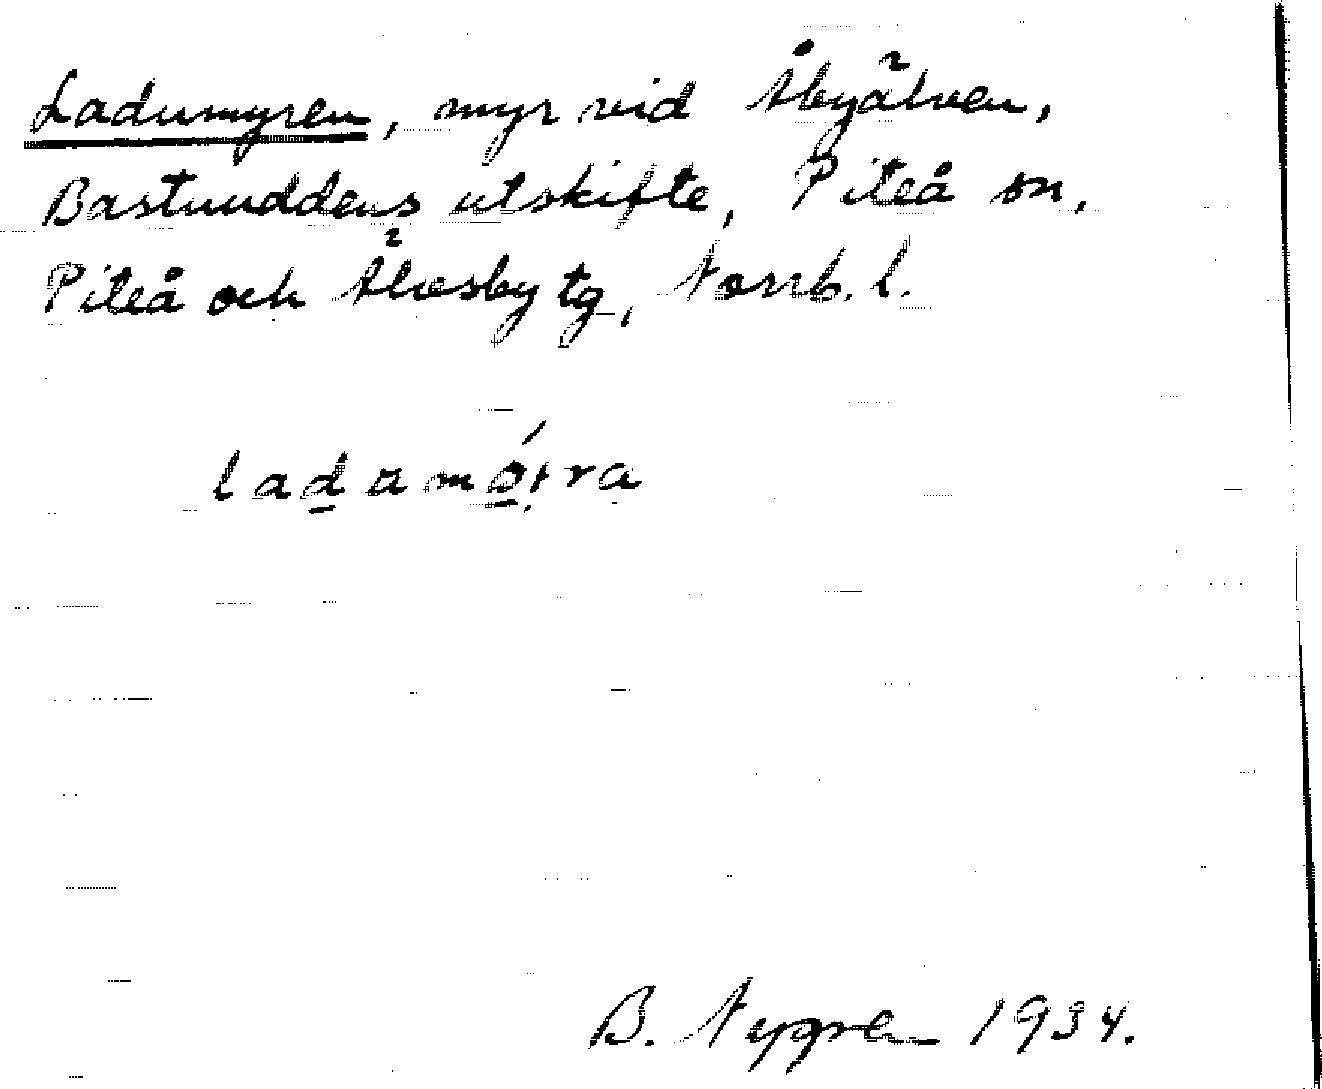 Ladumyren, myr vid Åbyälven,
Bastuuddens utskifte, Piteå sn,
Piteå och Älvsby tg, Norrb. l.
ladamøi̯ra
B. Nygren 1934.